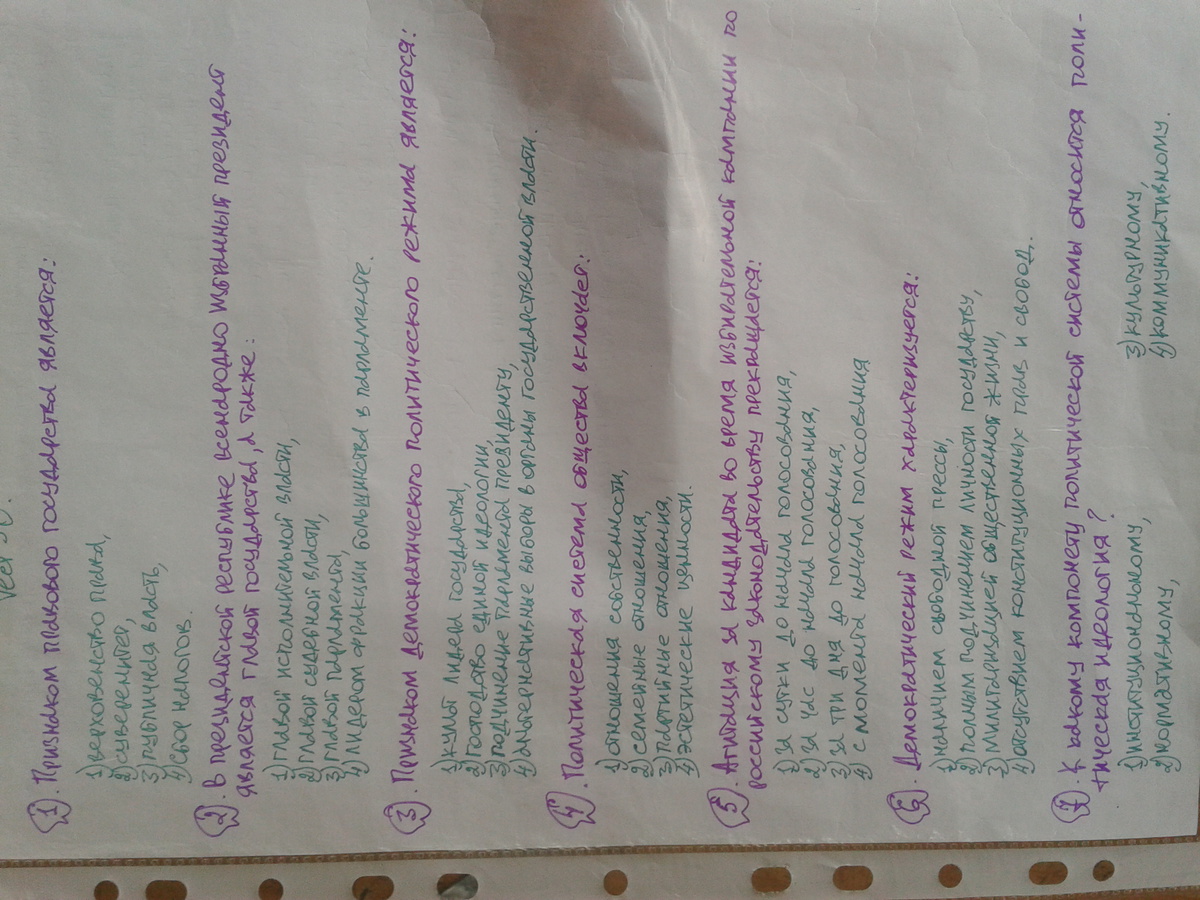 1. Признаком правового государства является:
1) верховенство права,
2) суверенитет,
3) публичная власть,
4) сбор налогов.
2. В президентской республике всенародно избранный президент
является главой государства, а также:
1) главой исполнительной власти,
2) главой судебной власти,
3) главой парламента,
4) лидером фракции большинства в парламенте.
3. Признаком демократического политического режима является:
1) культ лидера государства,
2) господство единой идеологии,
3) подчинение парламента президенту,
4) альтернативные выборы в органы государственной власти.
4. Политическая система общества включает:
1) отношения собственности,
2) семейные отношения,
3) партийные отношения,
4) эстетические ценности.
5. Агитация за кандидата во время избирательной кампании по
российскому законодательству прекращается:
1) за сутки до начала голосования,
2) за час до начала голосования,
3) за три дня до голосования,
4) с момента начала голосования
6. Демократический режим характеризуется:
1) наличием свободной прессы,
2) полным подчинением личности государству,
3) милитаризацией общественной жизни,
4) отсутствием конституционных прав и свобод.
7. К какому компоненту политической системы относится поли-
тическая идеология?
1) институциональному,
2) нормативному,
3) культурному,
4) коммуникативному.